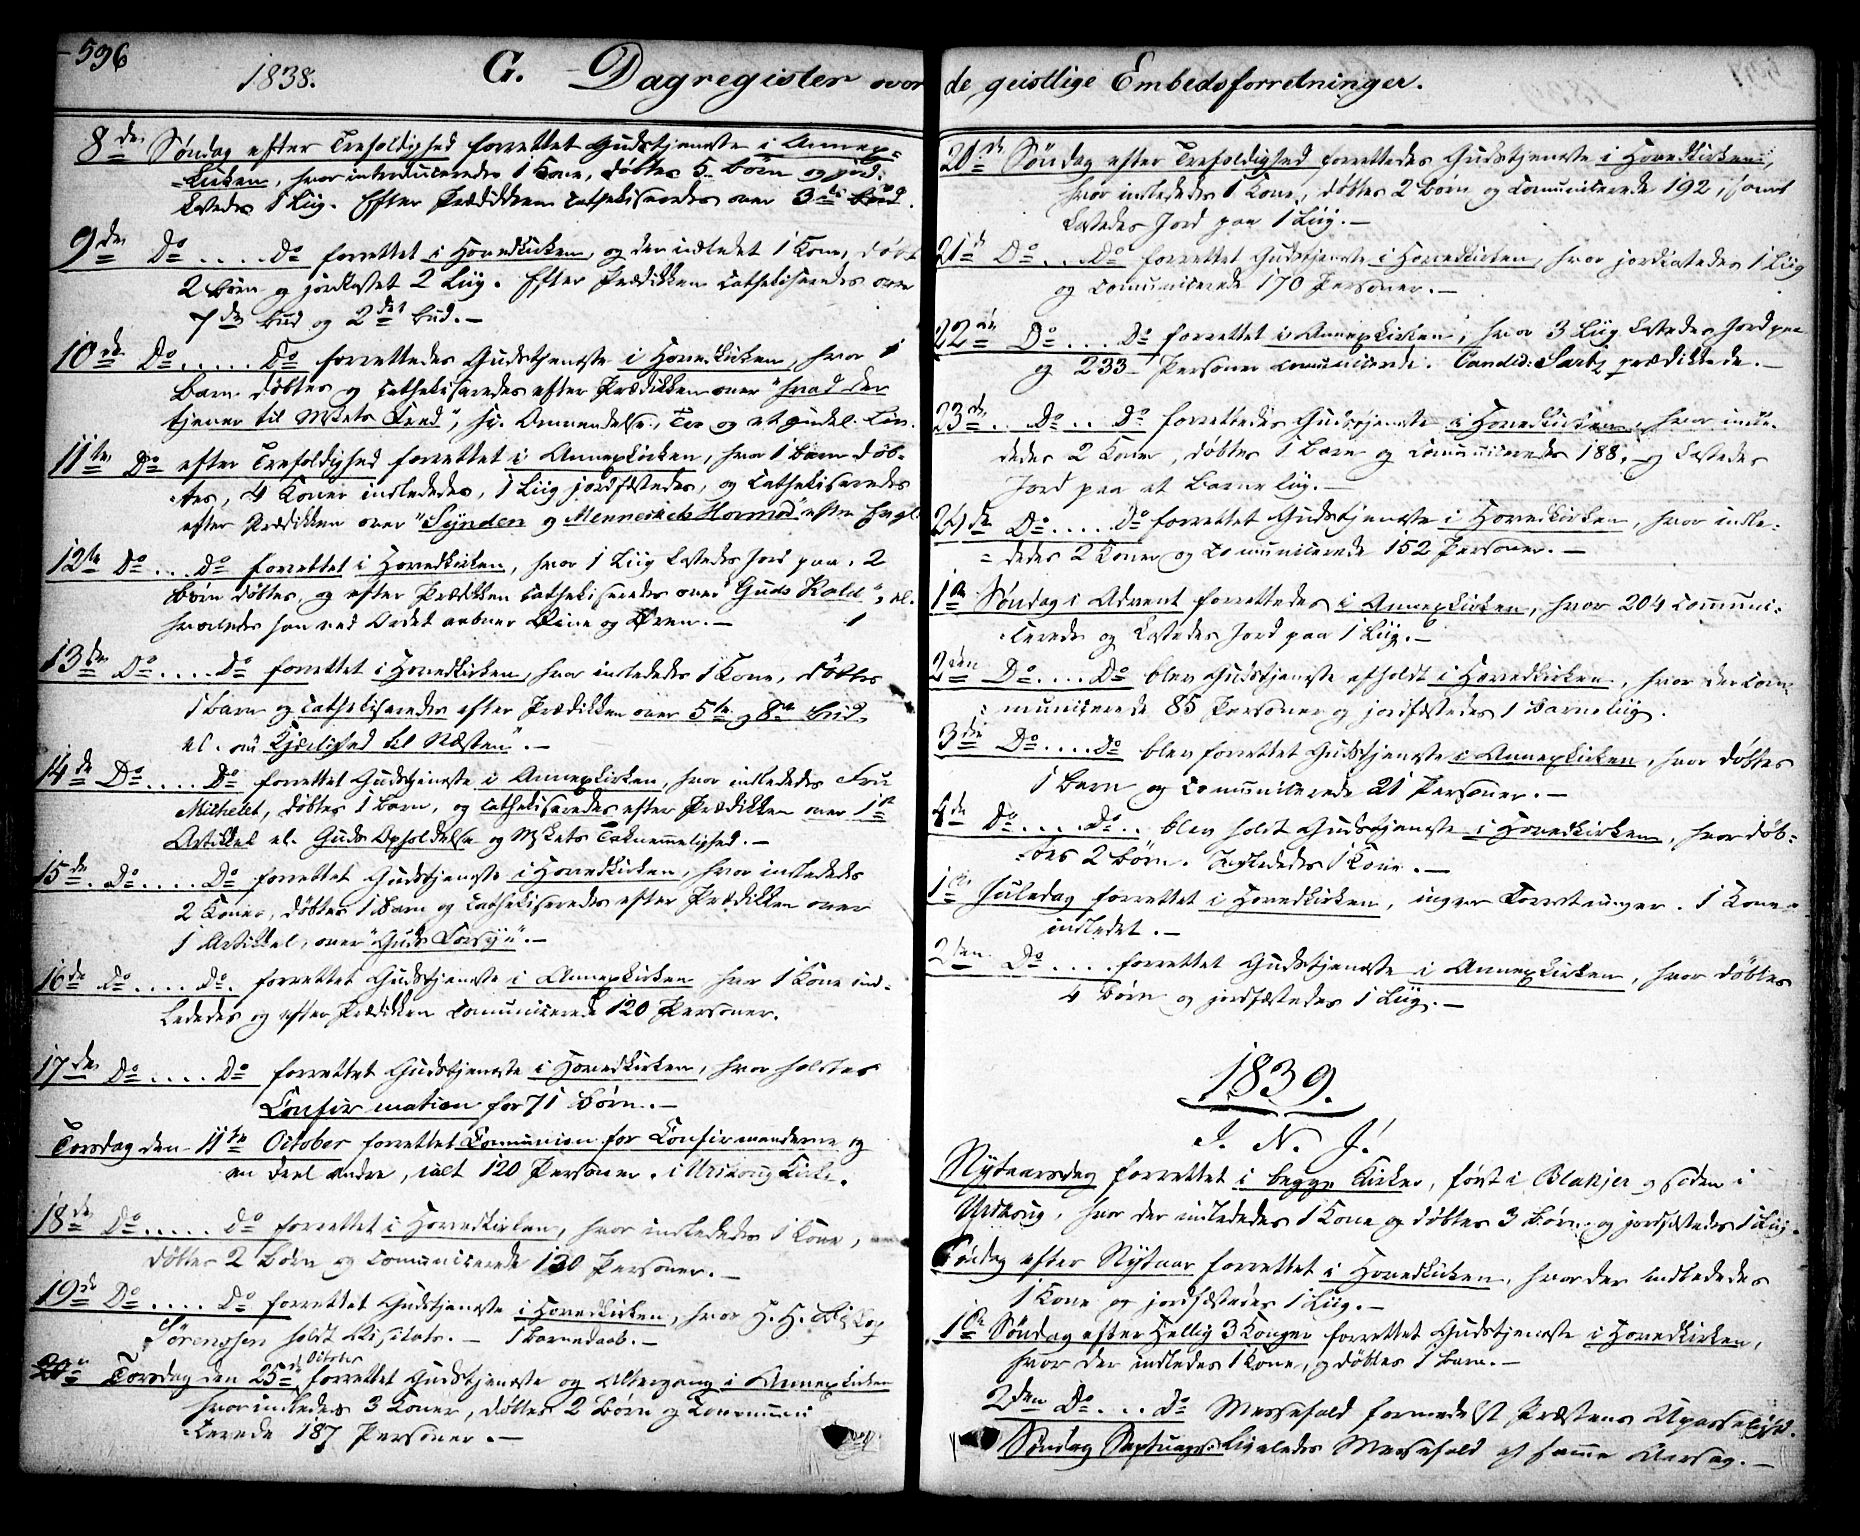 596
1838. G. Dagregister over
8de Søndag efter Trefoldighed forrettet Gudstjeneste i Annex-
kirken, hvor introduceredes 1 Kone, døbtes 5 Børn og jord-
kastedes 1 Liig. Efter Prædikken catheliseredes over 3die Bud.
9de Do .... Do forrettet i Hovedkirken, og der indledet 1 Kone, døbt
2 Børn og jordkastet 2 Liig. Efter Prædikken catheliseredes over
7de Bud og 2det Bud. —
10de Do ..... Do forrettedes Gudstjeneste i Hovedkirken, hvor 1
Barn døbtes og catheliseredes efter Prædikken over "hvad der
tjener til Mskets Fred",
11te Do efter Trefoldighed forrettet i Annexkirken, hvor 1 Barn døb-
tes, 4 Koner indlededes, 1 Liig jordfæstedes, og catheliseredes
efter Prædikken over "Synden og Menneskets Hovmod" efter
12te Do ... Do forrettet i Hovedkirken, hvor 1 Liig kastedes Jord paa, 2
Børn døbtes, og efter Prædikken catheliseredes over "Guds Kald", el.
hvorledes han ved Ordet aabner Øine og Øren. —
13de Do .... Do forrettet i Hovedkirken, hvor indlededes 1 Kone, døbtes
1 Barn og catheliseredes efter Prædikken over 5te og 8de Bud,
el. om Kjærlighed til Næsten". —
14de Do ..... Do forrettet Gudstjeneste i Annexkirken, hvor indlededes Fru
Milhelet, døbtes 1 Barn, og catheliseredes efter Prædikken over 1ste
Artikkel el. Guds Opholdelse og Mskets Taknemmelighed. —
15de Do ..... Do forrettet Gudstjeneste i Hovedkirken, hvor indlededes
2 Koner, døbtes 1 Barn og catheliseredes efter Prædikken over
1 Artikkel, over "Guds Forsyn". —
16de Do .... Do. forrettet Gudstjeneste i Annexkirken hvor 1 Kone ind-
lededes og efter Prædikken communicerede 120 Personer.
17de Do ..... Do forrettet Gudstjeneste i Hovedkirken, hvor holdtes
Confirmation for 71 Børn. —
Torsdag den 11te October forrettet Communion for Confirmanderne og
en Deel andre, ialt 120 Personer. i Urskoug Kirke.
18de Do ..... Do forrettet i Hovedkirken, hvor indlededes 1 Kone,
døbtes 2 Børn og communicerede 130 Personer. —
19de Do ..... Do forrettet Gudstjeneste i Hovedkirken, hvor H. H. Biskop
Sørenssen holdt Visitats. — 1 Barnedaab. —
Torsdag den 25de October forrettet Gudstjeneste og Altergang i Annexkirken
hvor indledes 3 Koner, døbtes 2 Børn og Communi
cerede 187 Personer. —
de geistlige Embedsforretninger.
20de Søndag efter Trefoldighed forrettedes Gudstjeneste i Hovedkirken,
hvor indlededes 1 Kone, døbtes 2 Børn og communicerede 192, samt
kastedes Jord paa 1 Liig. —
21de Do ... Do forrettet Gudstjeneste i Hovedkirken, hvor jordkastedes 1 Liig
og communicerede 170 Personer. —
22den Do .... Do forrettet i Annexkirken, hvor 3 Liig kastedes Jord paa
og 233 Personer communicerede. Candid: Sartz prædikkede. —
23de .. Do ... Do forrettedes Gudstjeneste i Hovedkirken, hvor indle-
dedes 2 Koner, døbtes 1 Barn og communiceredes 188, og kastedes
Jord paa et Barneliig. —
24de Do .... Do forrettet Gudstjeneste i Hovedkirken, hvor indle-
dedes 2 Koner og communicerede 152 Personer. —
1ste Søndag i Advent forrettedes i Annexkirken, hvor 204 communi-
cerede og kastedes Jord paa 1 Liig. —
2den Do .... Do blev Gudstjeneste afholdt i Hovedkirken, hvor der com-
municerede 85 Personer og jordfæstedes 1 Barneliig.
3die Do .... Do blev forrettet Gudstjeneste i Annexkirken, hvor døbtes
1 Barn og communicerede 21 Personer. —
4de Do .... Do .. blev holdt Gudstjeneste i Hovedkirken, hvor døb-
tes 2 Børn. Indlededes 1 Kone. —
1ste Juledag forrettet i Hovedkirken, ingen Forretninger. 1 Kone
indledet. —
2den Do .... forrettet Gudstjeneste i Annexkirken, hvor døbtes
4 Børn og jordfæstedes 1 Liig. —
1839.
I. N. J.
Nytaarsdag forrettet i begge Kirker, først i Blakjer og siden i
Urskoug, hvor der indlededes 1 Kone og døbtes 3 Børn og jordfæstedes 1 Liig.
Søndag efter Nytaar forrettet i Hovedkirken, hvor der indlededes
1 Kone og jordfæstedes 1 Liig. —
1ste Søndag efter Hellig 3 Konger forrettet Gudstjeneste i Hovedkirken,
hvor der indledes 1 Kone, og døbtes 1 Barn. —
2den Do ... Do Messefald formedelst Præstens Upasselighd.
Søndag Septuages: ligeledes Messefald af samme Aarsag. —